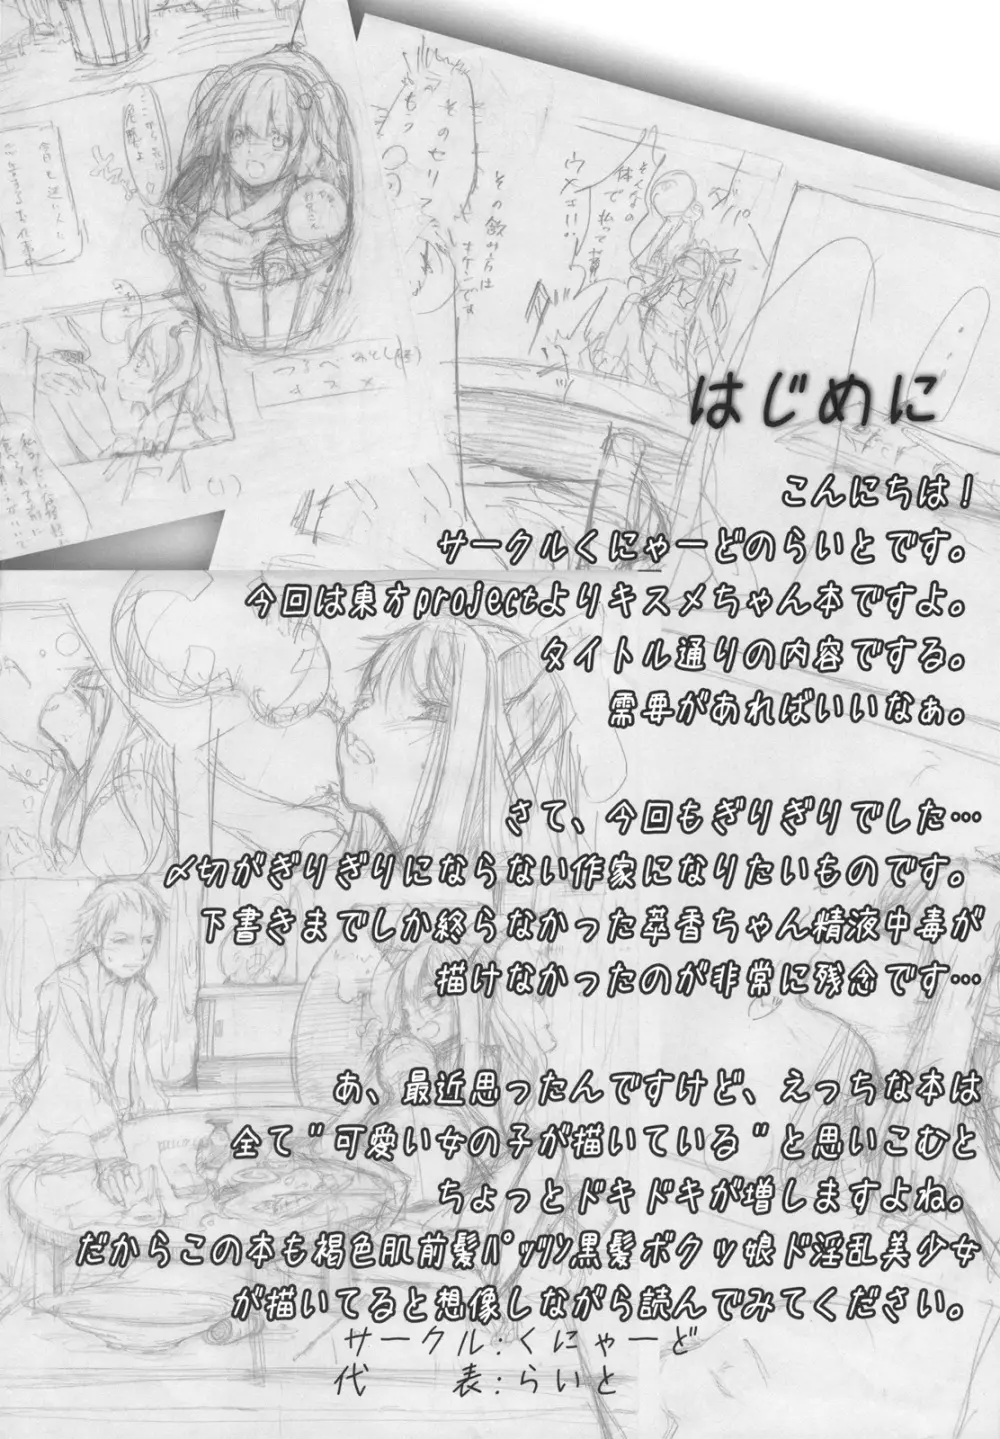 はじめに
こんにちは！
サークルくにゃーどのらいとです。
今回は東方projectよりキスメちゃん本ですよ。
タイトル通りの内容でする。
需要があればいいなぁ。
さて、今回もぎりぎりでした…
〆切がぎりぎりにならない作家になりたいものです。
下書きまでしか終らなかった萃香ちゃん精液中毒が
描けなかったのが非常に残念です…
あ、最近思ったんですけど、えっちな本は
全て"可愛い女の子が描いている"と思いこむと
ちょっとドキドキが増しますよね。
だからこの本も褐色肌前髪ﾊﾟｯﾂﾝ黒髪ボクッ娘ド淫乱美少女
が描いてると想像しながら読んでみてください。
サークル:くにゃーど
代　　表:らいと
その飲み方は
キケンです
そんなの
体で私って
ウメェ!!
つるべおとし(怪)
キスメ